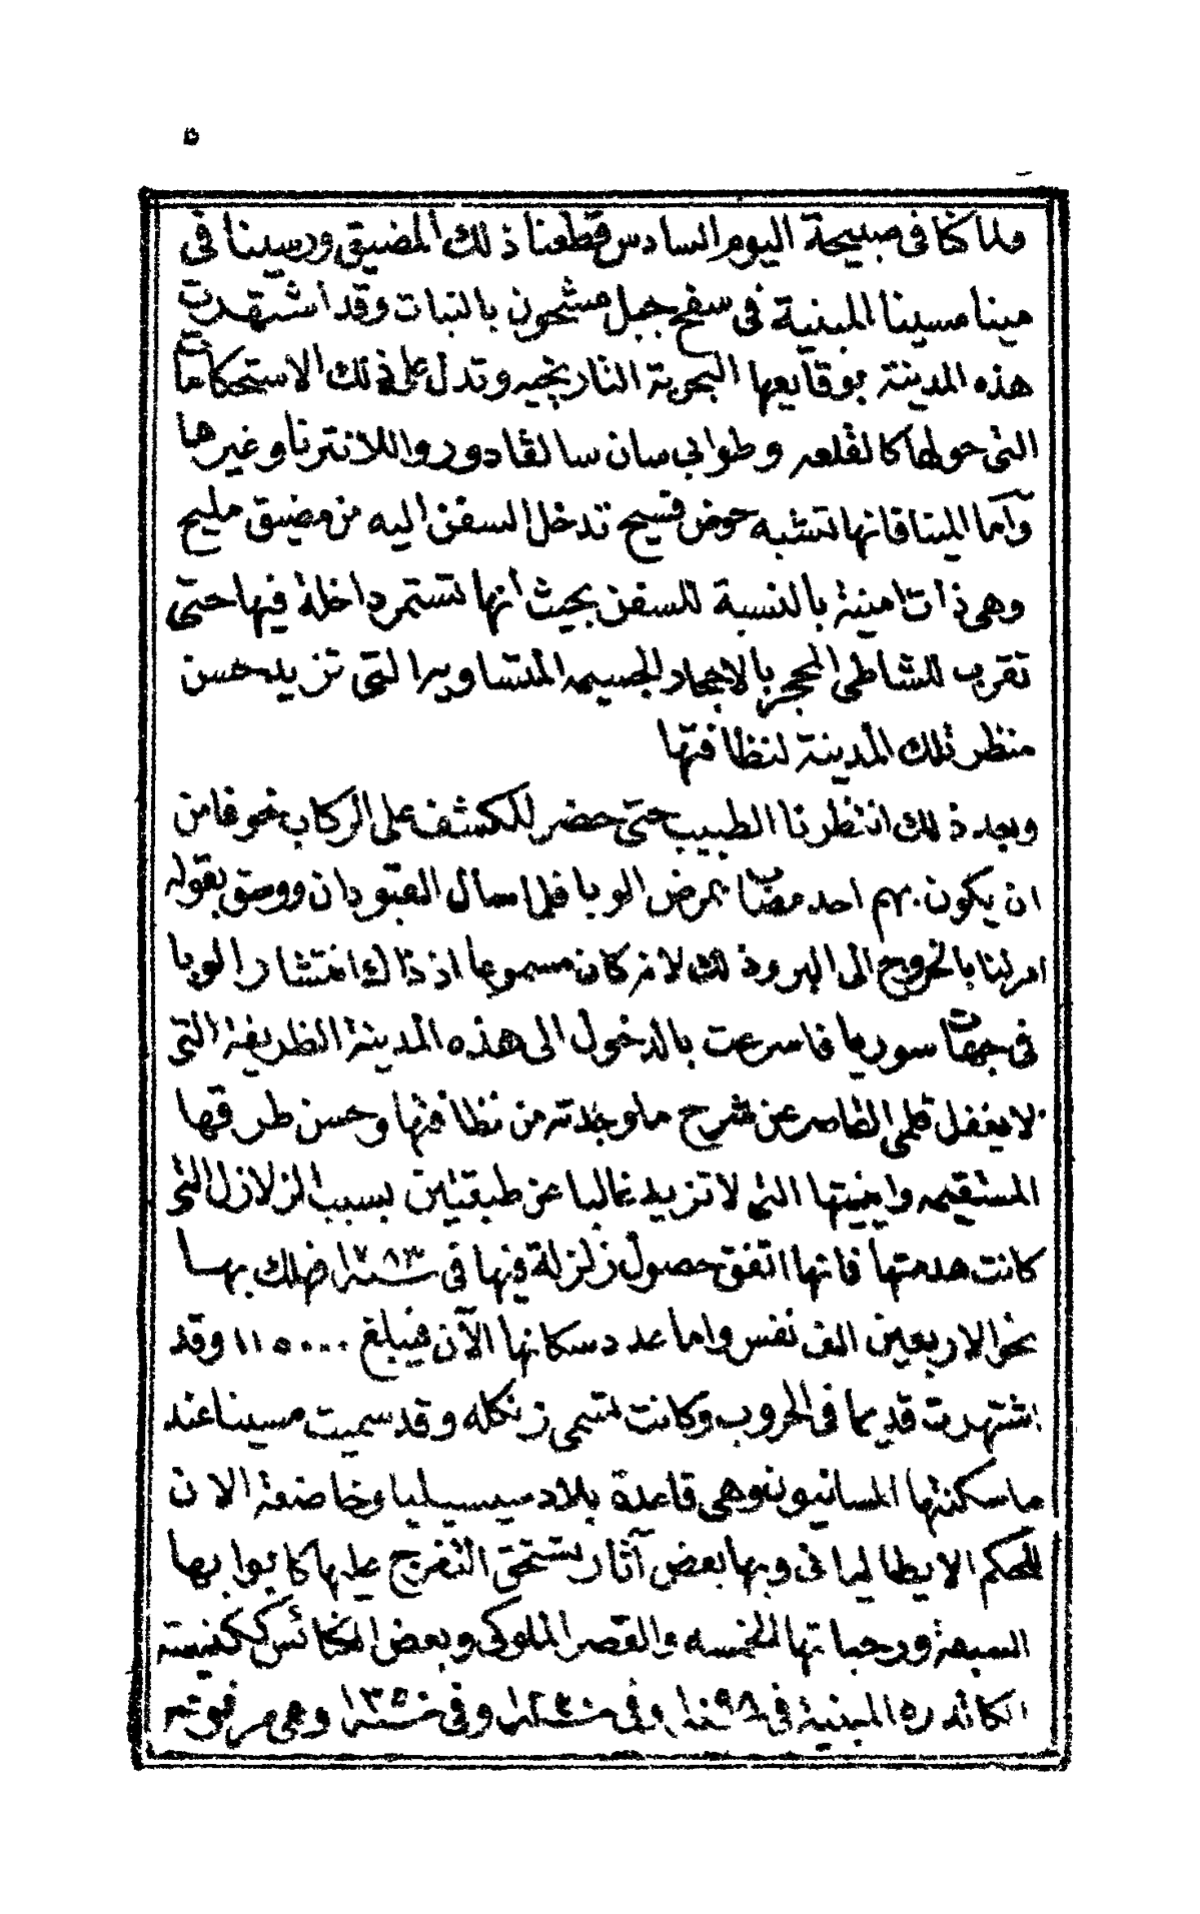 ٥
ولما كنا فى صبيحة اليوم السادس قطعنا ذلك المضيق ورسينا فى
مينا مسينا المبنية فى سفح جبل مشحون بالنبات وقد اشتهرت
هذه المدينة بوقايعها البحرية التاريخيه وتدل على ذلك الاستحكامات
التى حولها كالقلعه وطوابى سان سالفادور واللانترنا وغيرها
وأما المينا فانها تشبه حوض فسيح تدخل السفن اليه من مضيق مليح
وهى ذات امنية بالنسبة للسفن بحيث أنها تستمر داخلة فيها حتى
تقرب للشاطى المحجر بالاحجار الجسيمه المتساويه التى تزيد حسن
منظر تلك المدينة لنظافتها
وبعد ذلك انتظرنا الطبيب حتى حضر للكشف على الركاب خوفا من
ان يكون بهم احد مصاب بمرض الوبا فلما سأل القبودان ووثق بقوله
امر لنا بالخروج الى البر وذلك لانه كان مسموعا اذ ذاك انتشار الوبا
فى جهات سوريا فاسرعت بالدخول الى هذه المدينة الظريفة التى
لا يغفل قلمى القاصر عن شرح ما وجدته من نظافتها وحسن طرقها
المستقيمه وابنيتها التى لا تزيد غالبا عن طبقتين بسبب الزلازل التى
كانت هدمتها فانها اتفق حصول زلزلة فيها فى سنة ١٧٨٣ فهلك بها
نحو الاربعين الف نفس واما عدد سكانها الآن فيبلغ ١١٥٠٠٠ وقد
اشتهرت قديما فى الحروب وكانت تسمى زنكله وقد سميت مسينا عند
ما سكنتها المسانيون وهى قاعدة بلاد سيسيليا وخاضعة الان
للحكم الايطاليانى وبها بعض آثار يستحق التفرج عليها كابوابها
السبعة ورحباتها الخمسه والقصر الملوكى وبعض الكنائس ككنيسة
الكاتدره المبنية فى سنة ١٠٩٨ وفى سنة وفى سنة وهى مرفوعه